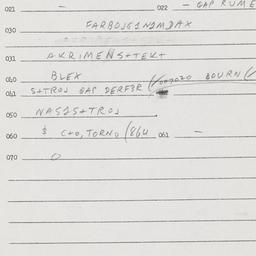 021 – 022 – GAP RUME
030 FARBOJGINJMJAX
031 AKRIMENS+TEKT
040 BLEX
041 S+TROJ GAP DERFJR BOURN
050 NASJS+TROJ
060 $ C+O, TORNO /864 061 –
070 O